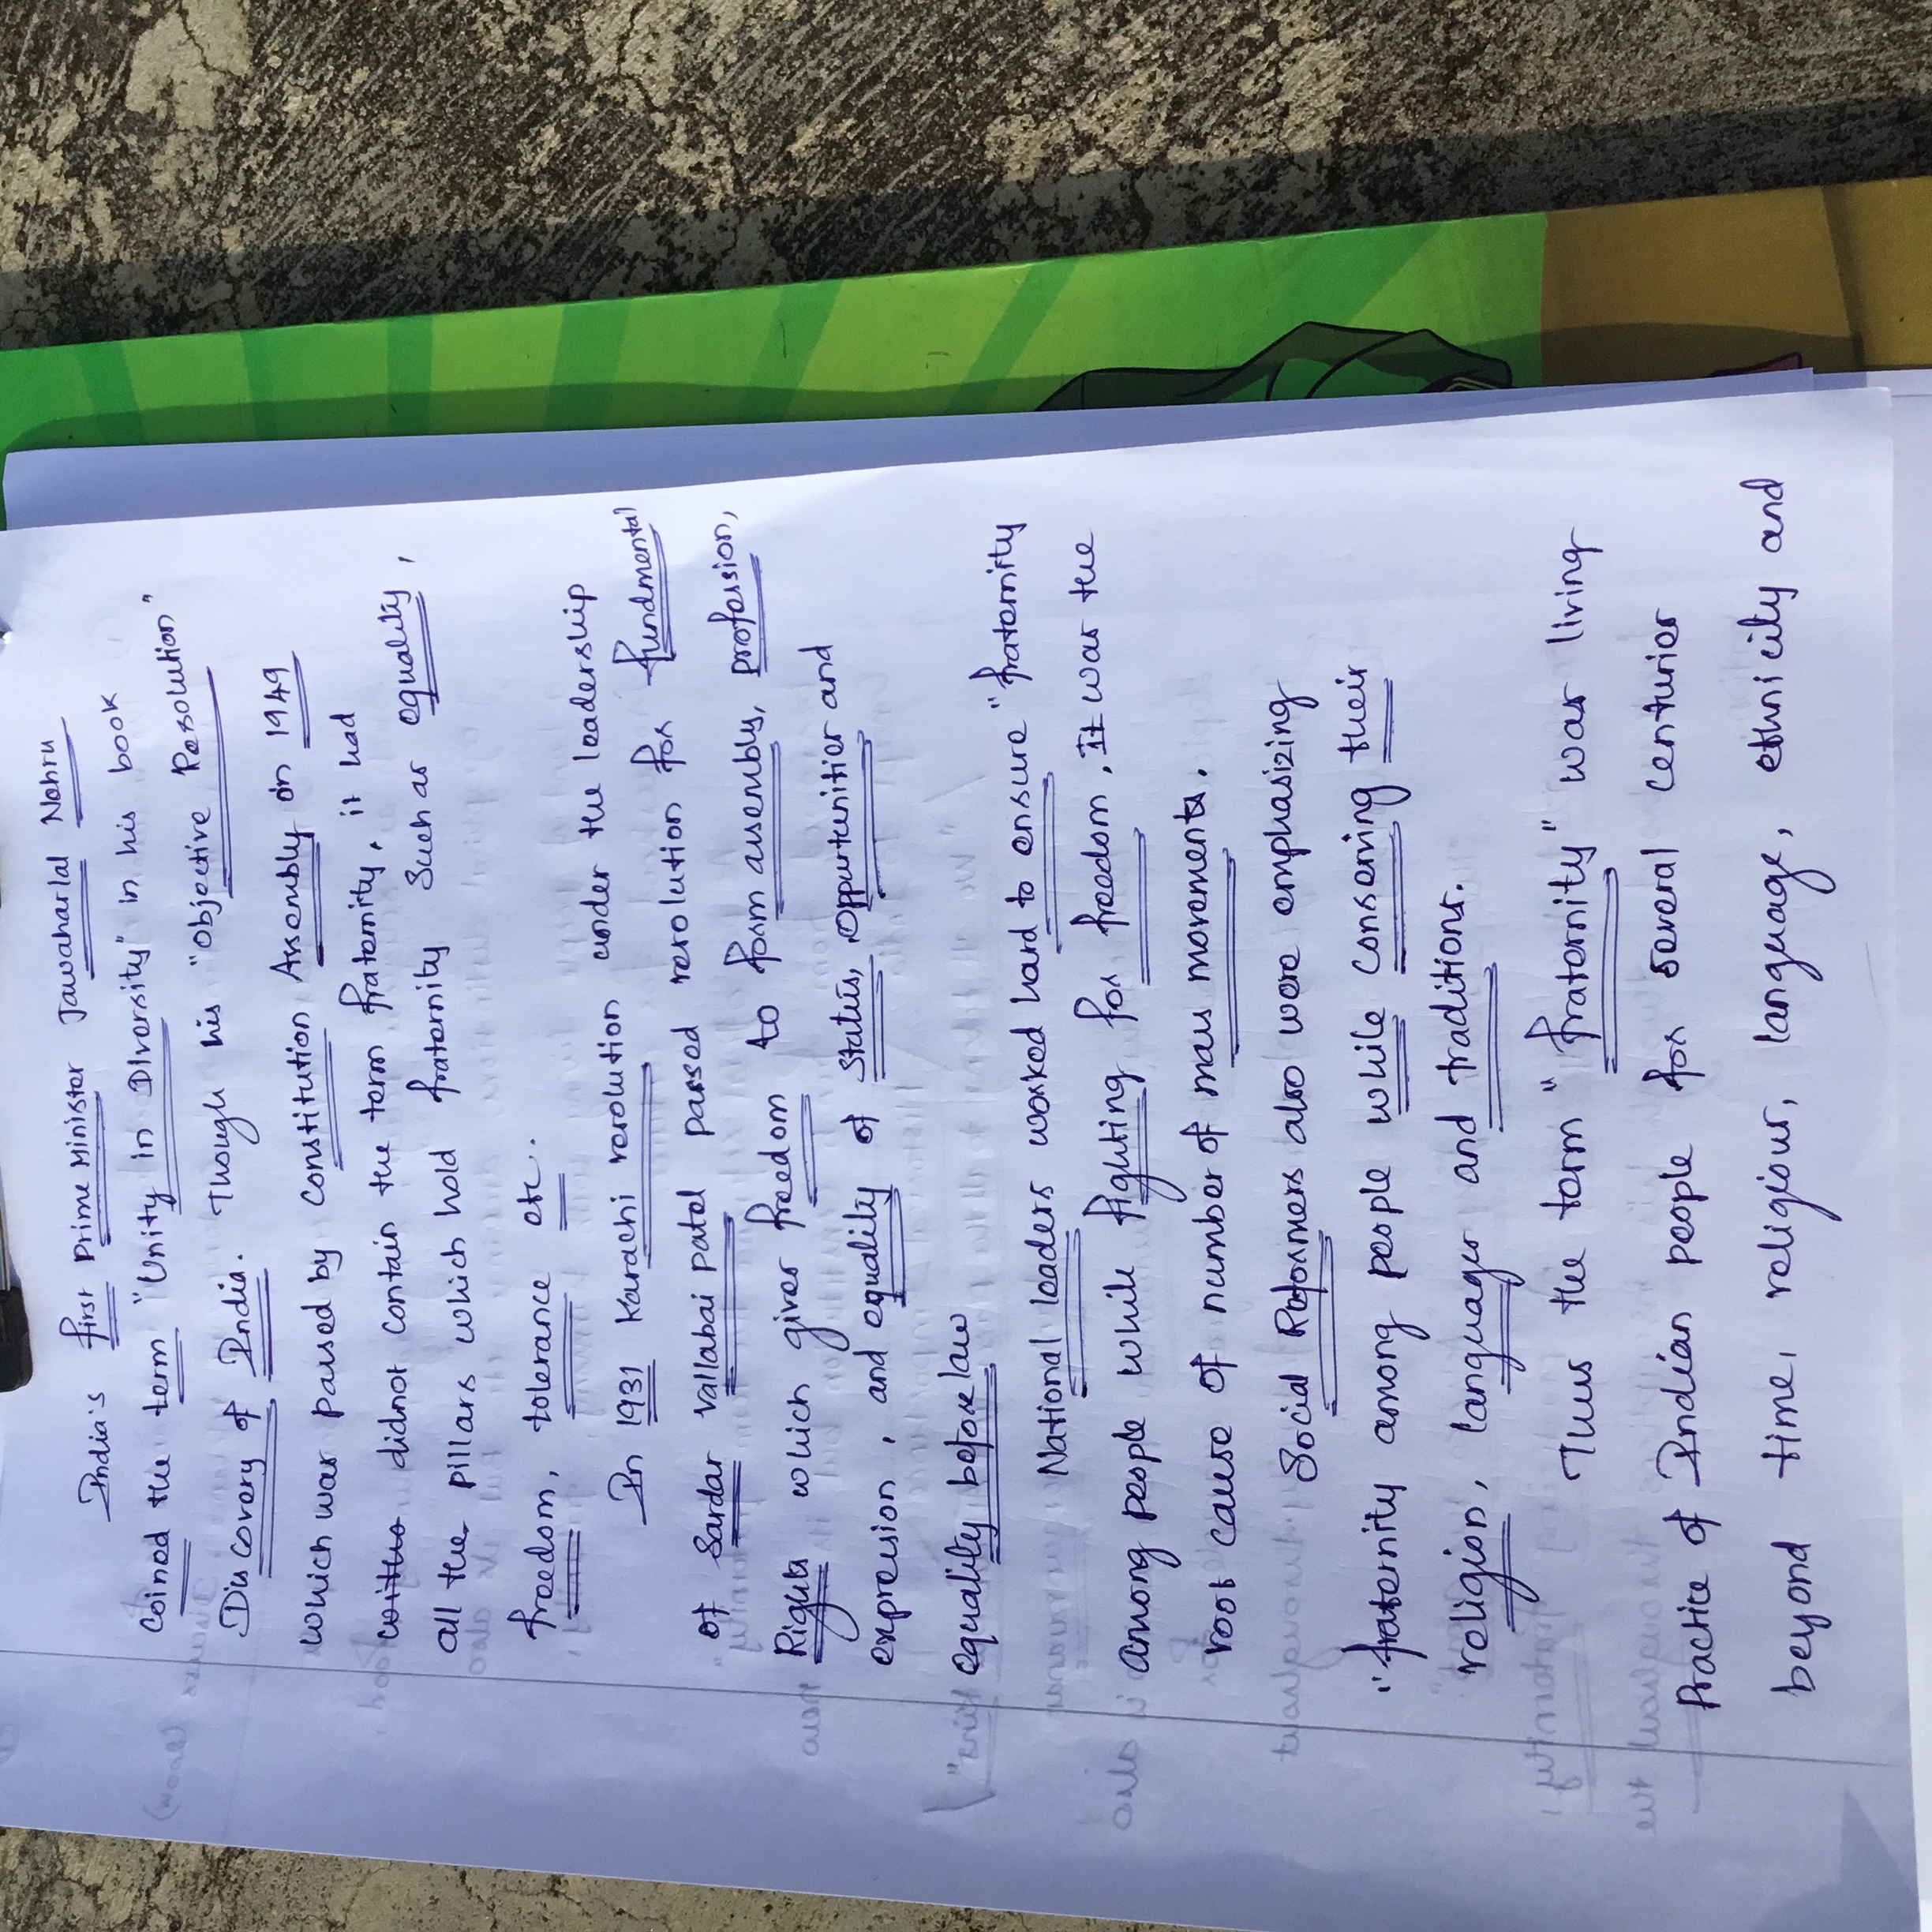 India's first Prime Minister Jawaharlal Nehru
Coined the term "Unity in DIversity" in his book
Discovery of India. Though his "Objective Resolution"
which was passed by Constitution Assembly on 1949
didnot contain the term fraternity, it had
all the pillars which hold fraternity Such as equality,
freedom, tolerance etc.
In 1931 Karachi resolution under the leadership
of Sardar vallabai patel passed resolution for fundmental
Rights which gives freedom to form assembly, profession,
expression, and equality of Status, Oppurtunities and
equality before law
National leaders worked hard to ensure "fraternity
among people while fighting for freedom, It was the
root cause of number of mass movements.
Social Reformers also were emphasizing
"fraternity among people while conserving their
religion, languages and traditions.
Thus the term "fraternity" was living
Practice of Indian people for several centuries
beyond time, religious, language, ethnicity and